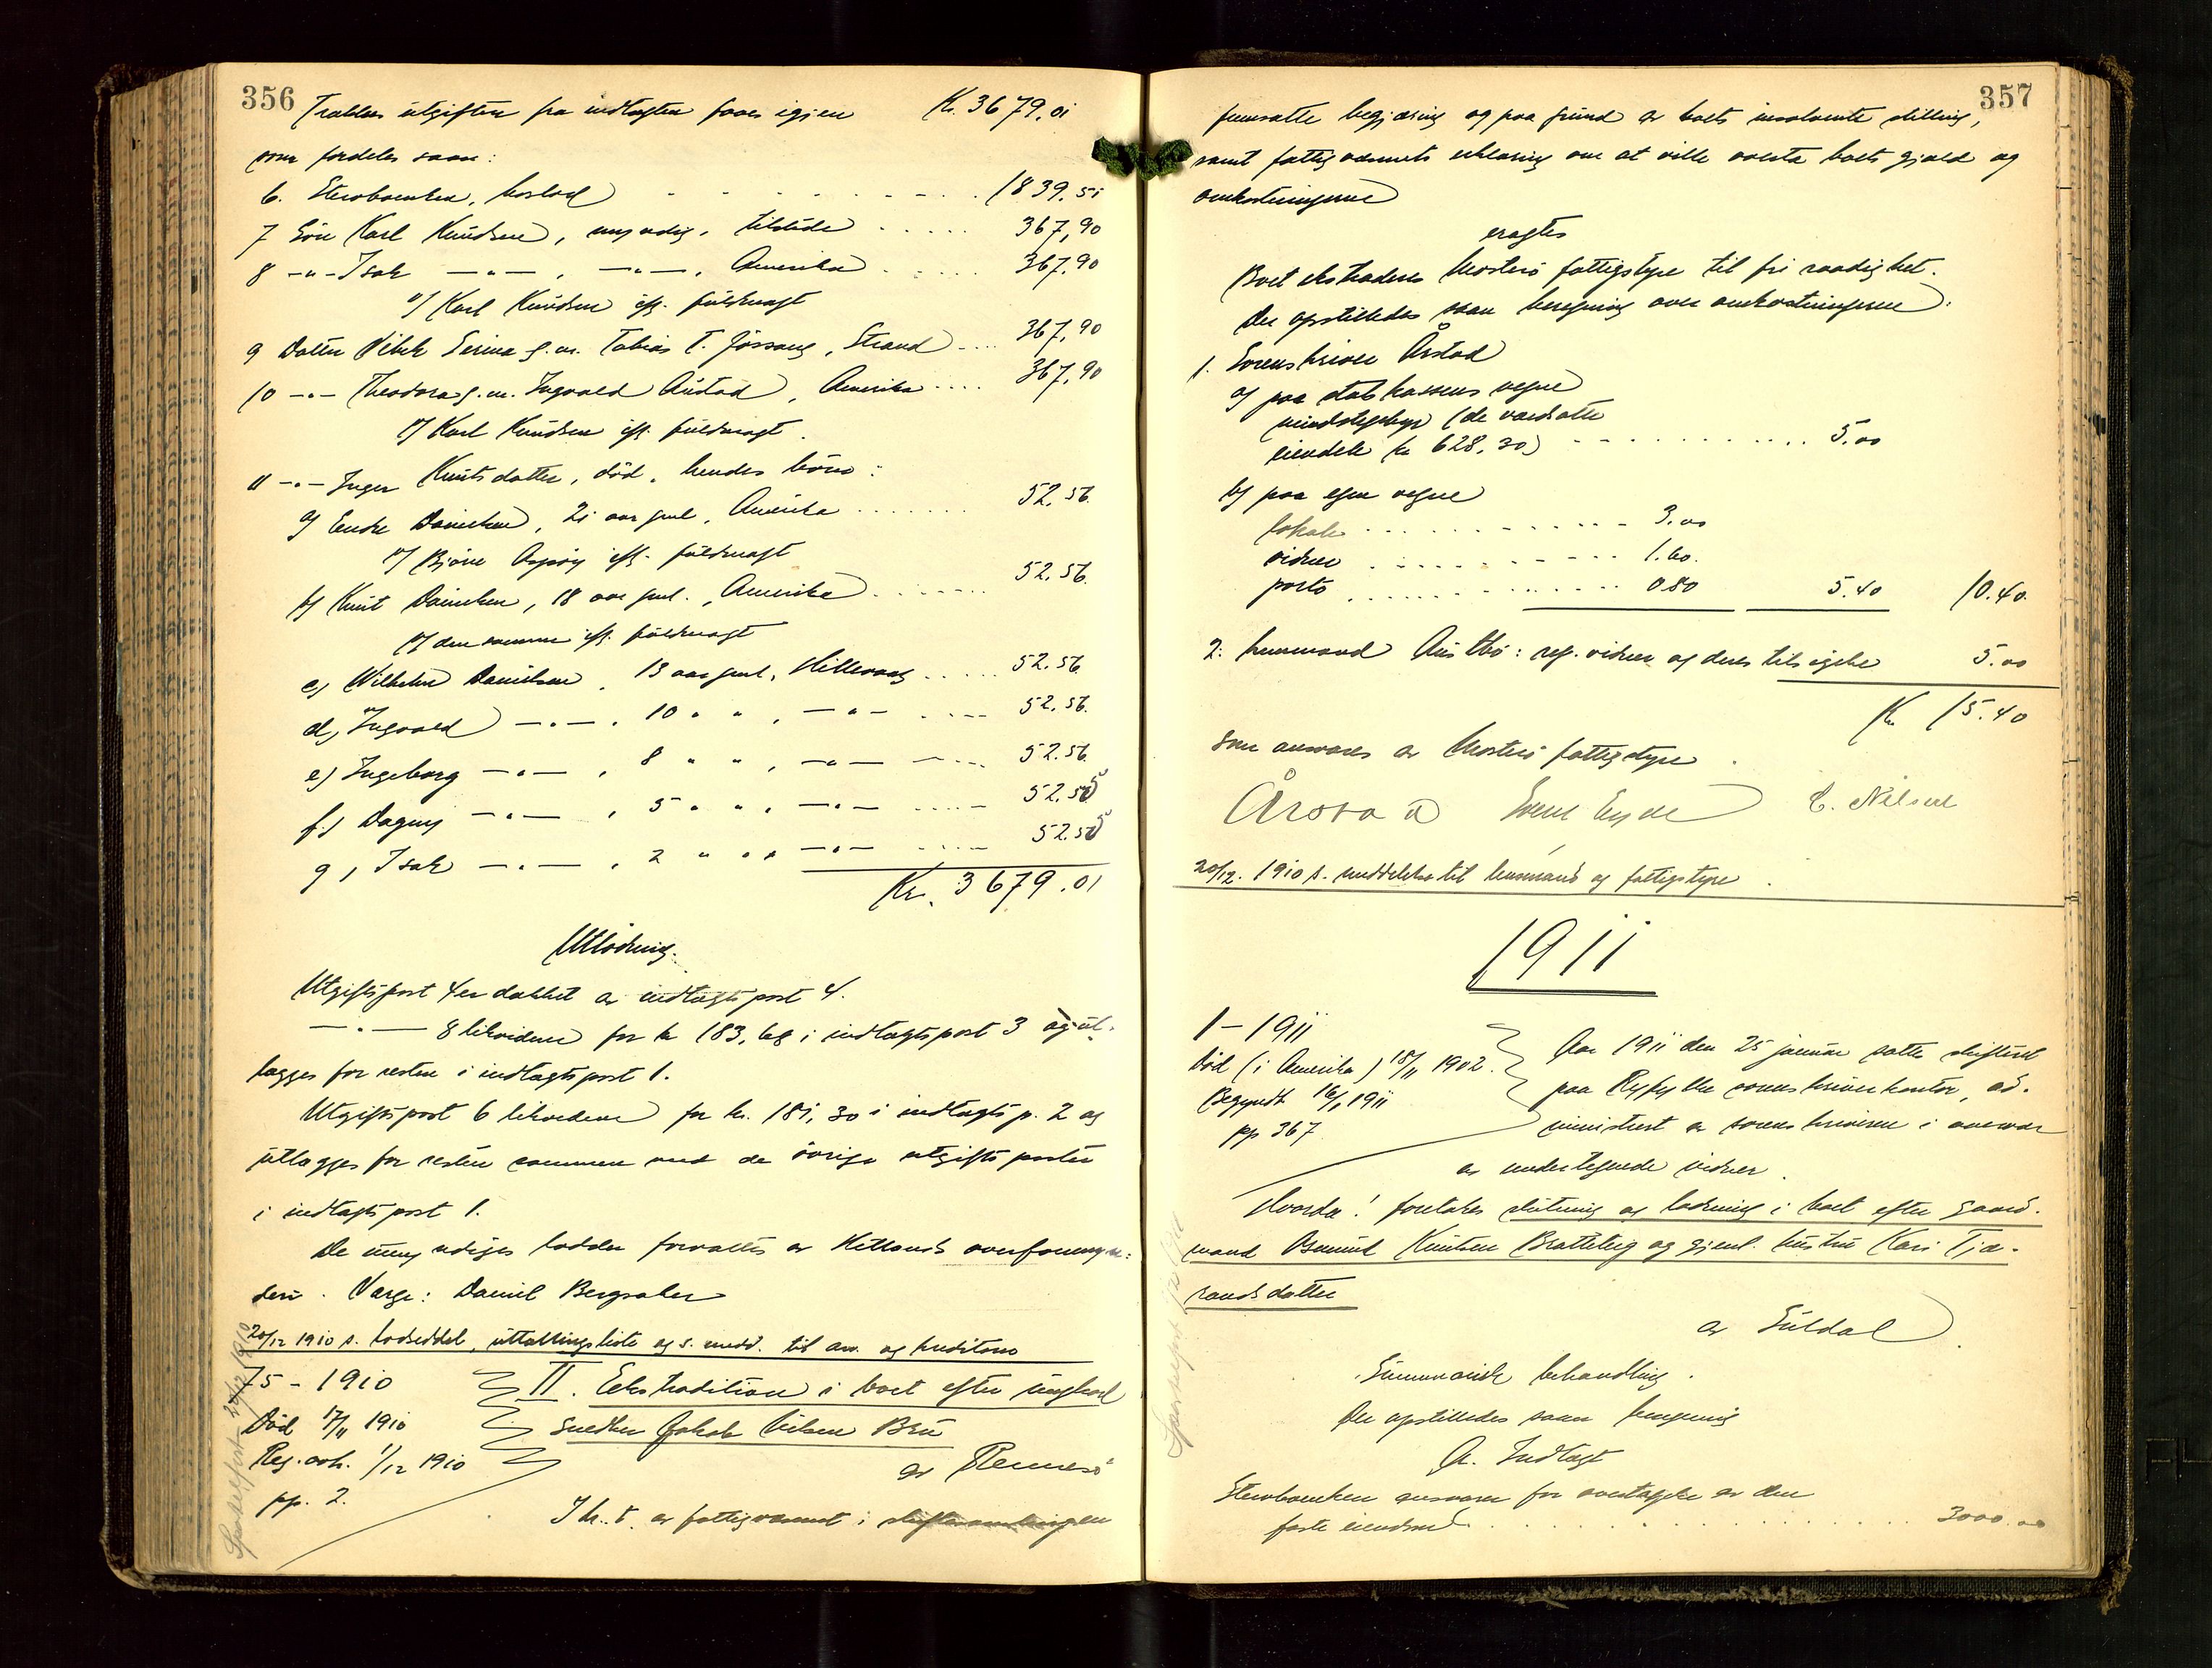 356
Trækkes utgiften fra indtægten faaes igjen Kr. 3679,01
som fordeles saa:
6. Sterboenken, boslod 1839,51
7 Søn Karl Knudsen, myndig, tilstede 367,90
8 -"- Isak -"-, -"-, Amerika 367,90
v/ Karl Knudsen efl. fuldmagt
9 Datter Vibek Serina g.m. Tobias T. Jøssang, Strand 367,90
10 -"- Theodora g.m. Ingvald Austad, Amerika 367,90
v/ Karl Knudsen efl. fuldmagt
11 -"- Inger Knutsdatter, død, hendes børn:
a) Endre Danielsen, 21 aar gml, Amerika 52,56
v/ Bjørn efl. fuldmagt
b) Knut Danielsen, 18 aar gml., Amerika 52,56
v/ den samme efl. fuldmagt
c) Wilhelm Danielsen, 13 aar gml, Hillevaag 52.56
d) Ingvald -"-, 10 " ", -"- 52.56
e) Ingeborg -"-, 8 " ", -"- 52.56
f.) Dagny -"-, 5 " ", -"- 52.55
g) Isak -"-, 2 " " " -"- 52.55
Kr. 3679.01
Utlodning.
Utgiftspost 4 er dækket av indtægtspost 4.
-"- 8 likvideres for kr 183,68 i indtægtspost 3 og ut-
lægges for resten i indtægtspost 1.
Utgiftspost 6 likvideres for kr. 181,30 i indtægtsp. 2 og
utlægges for resten sammen med de øvrige utgiftsposter
i indtægtspost 1.
De umyndiges lodder forvaltes av Hetlands overformynderi. Værge: Daniel Bergsaker
20/12 1910 s. lodseddel, uttællingsliste og s. medd. til arv. og kreditorer
75-1910
Død 17/11 1910
Reg. avh. 1/12 1910
pp. 2.
II. Ekstradition i boet efter ungkarl
snedker Jakob Nilsen Bru
av Rennesø
I h. t. av fattigvæsenet i skiftesamlingen
357
fremsatte begjæring og paa grund av boets insolvente stilling,
samt fattigvæsenets erklæring om at ville vedsta boets gjæld og
omkostningerne
eragtes
Boet ekstraderes Mosterø fattigstyre til fri raadighet.
Der opstilledes saan beregning over omkostningerne:
1. Sorenskriver Årstad
a) paa statskassens vegne
mindstegebyr (de værdsatte
eiendele kr 628,30) 5.00
b) paa egne vegne
lokale 3.00
vidner 1.60.
porto 0.80 5.40 10.40.
2. lensmand Austbø: reg. vidner og deres tilsigelse 5.00
Kr 15.40
som ansvares av Mosterø fattigstyre.
Årstad Svend Eyde C. Nilsen
20/12. 1910 s. meddelelse til lensmand og fattigstyre.
1911
1-1911
Død (i Amerika) 18/11 1902.
Begyndt 16/1 1911
pp 367
Aar 1911 den 25 januar sattes skifteret
paa Ryfylke sorenskriverkontor, ad-
ministrert av sorenskriveren i overvær
av undertegnede vidner.
Hvorda! foretokes slutning og lodning i boet efter gaard-
mand Osmund Knutsen Bratteteig og gjenl. hustru Kari Tja-
randsdatter
av Suldal
Summarisk behandling.
Der opstilledes saan beregning
A. Indtægt
Sterboenken ansvarer for overtagelse av den
faste eiendom 3000.00